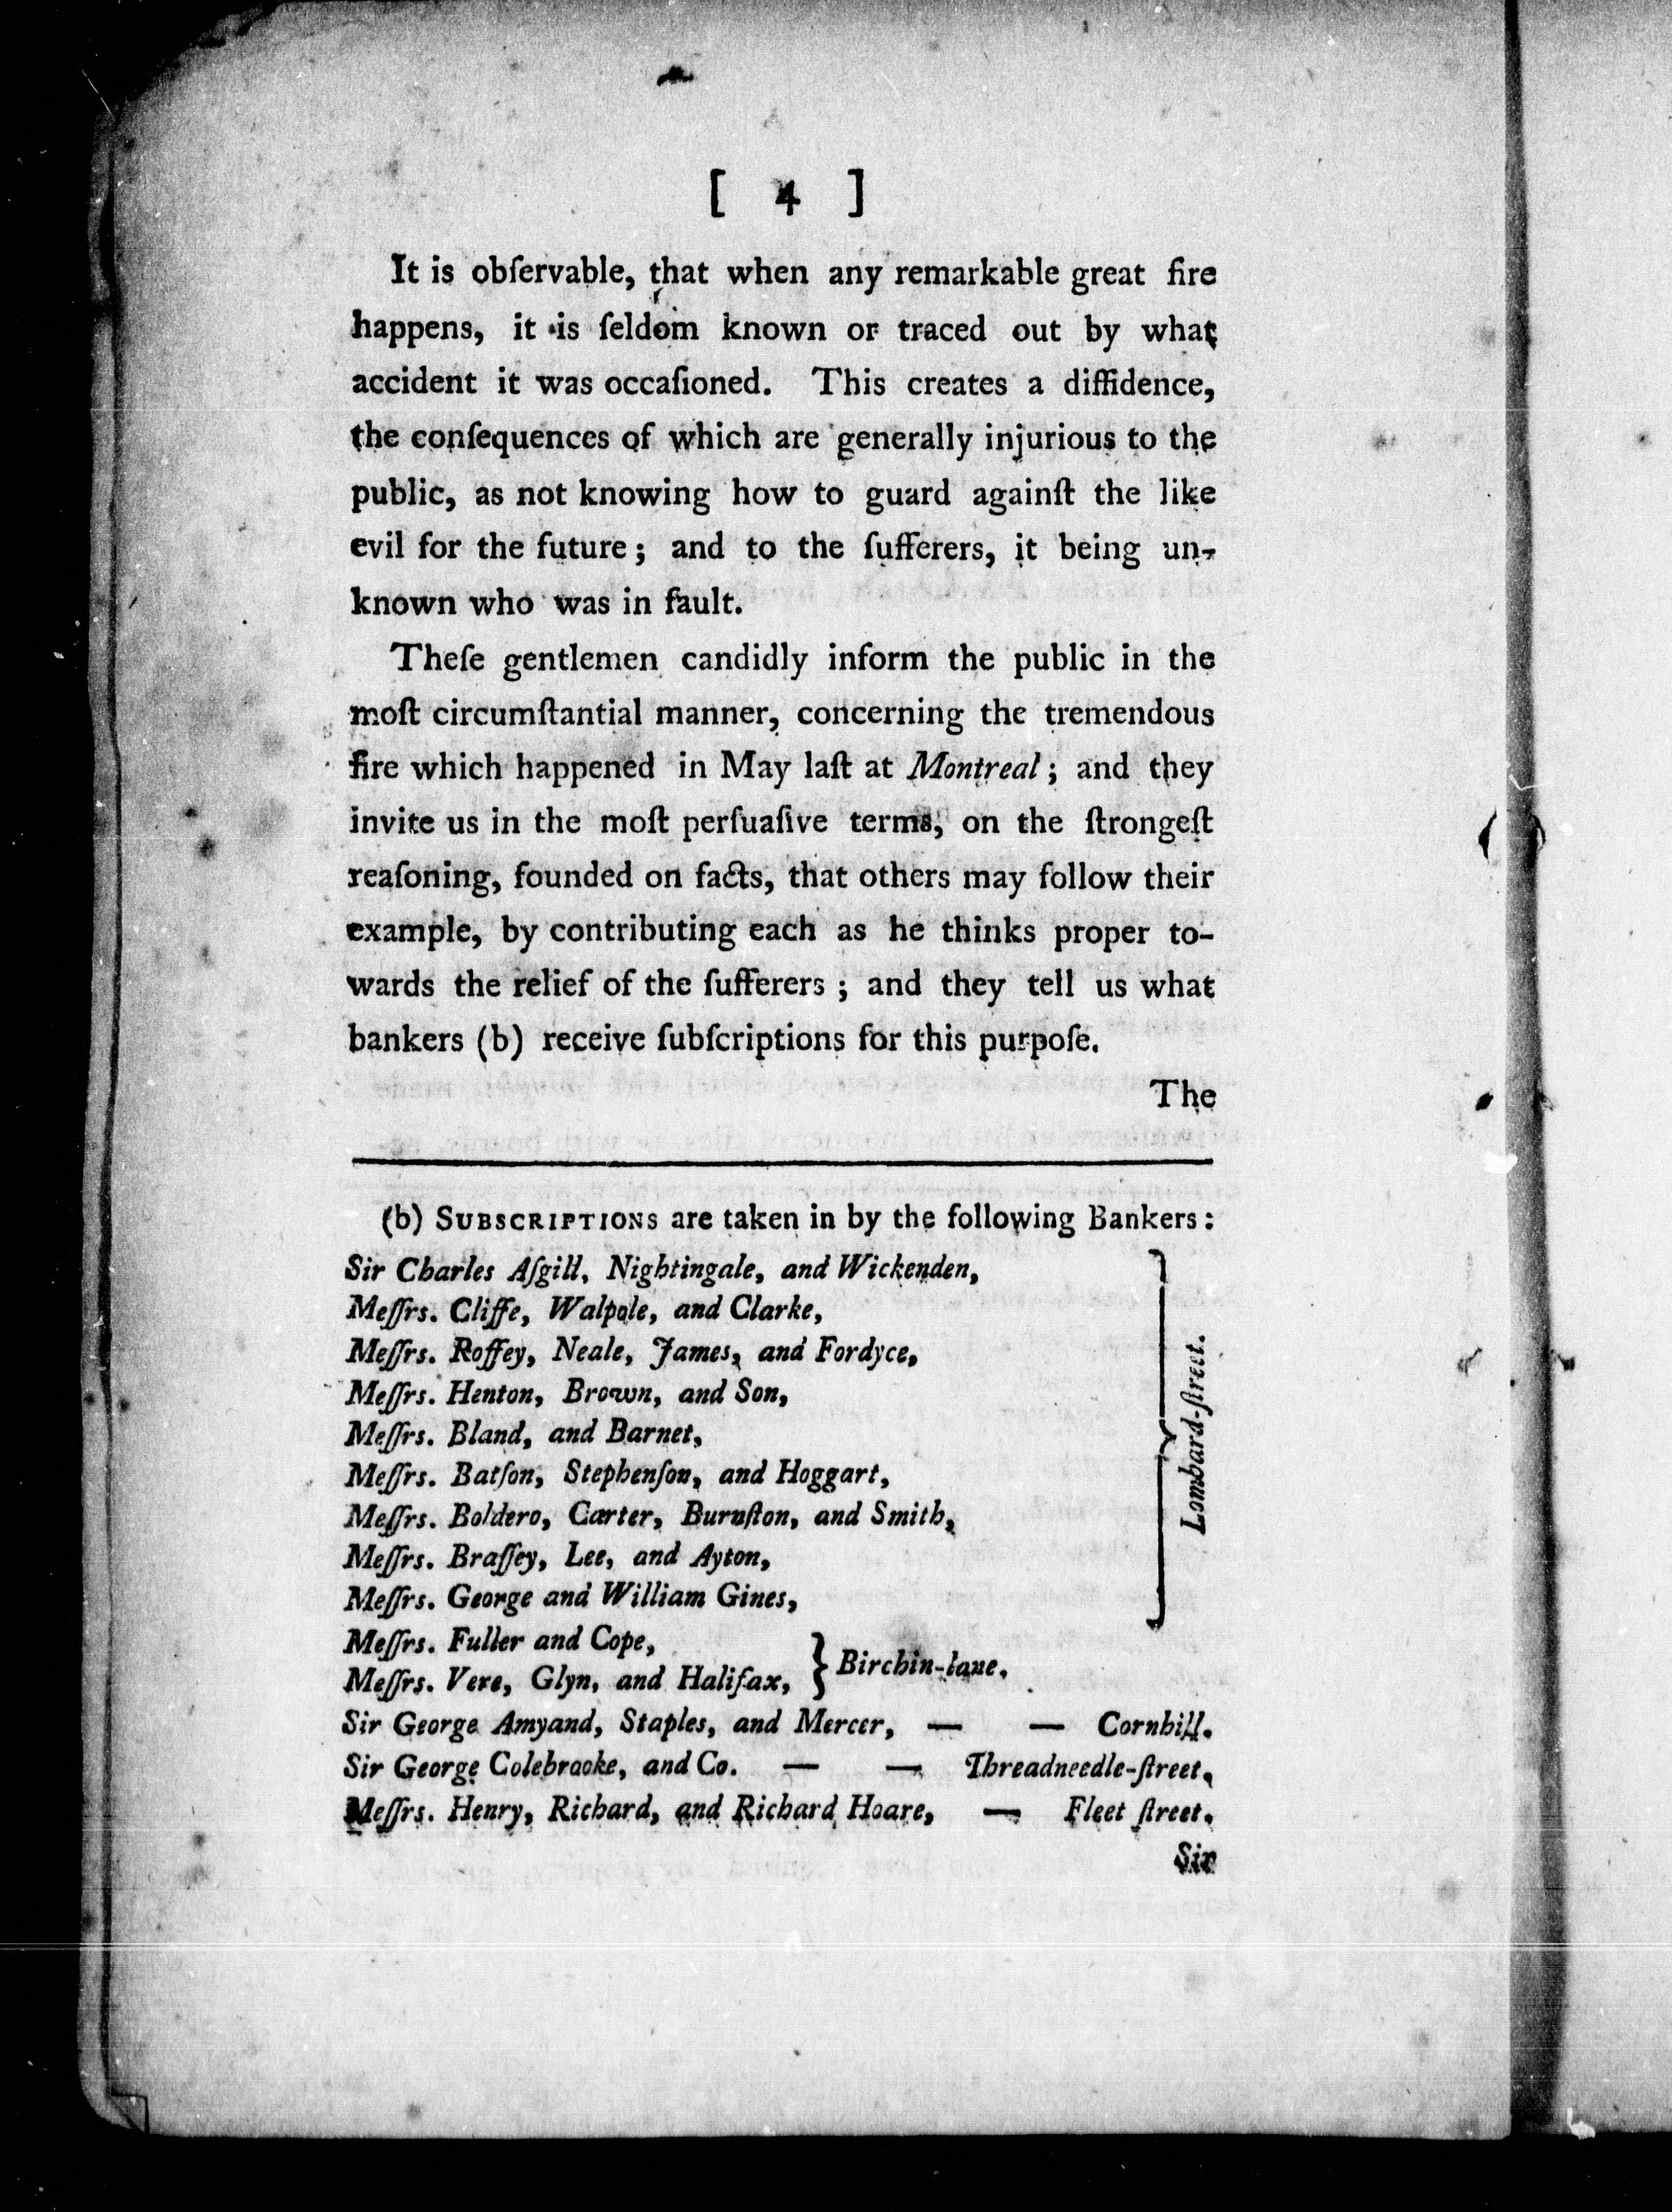 [ 4 ]
It is obſervable, that when any remarkable great fire
happens, it is ſeldom known or traced out by what
accident it was occaſioned. This creates a diffidence,
the conſequences of which are generally injurious to the
public, as not knowing how to guard againſt the like
evil for the future; and to the ſufferers, it being un-
known who was in fault.
Theſe gentlemen candidly inform the public in the
moſt circumſtantial manner, concerning the tremendous
fire which happened in May laſt at Montreal; and they
invite us in the moſt perſuaſive terms, on the ſtrongeſt
reaſoning, founded on facts, that others may follow their
example, by contributing each as he thinks proper to-
wards the relief of the ſufferers; and they tell us what
bankers (b) receive ſubſcriptions for this purpoſe.
The
(b) SUBSCRIPTIONS are taken in by the following Bankers:
Sir Charles Aſgill, Nightingale, and Wickenden,
Meſſrs. Cliffe, Walpole, and Clarke,
Meſſrs. Roffey, Neale, James, and Fordyce,
Meſſrs. Henton, Brown, and Son,
Meſſrs. Bland, and Barnet,
Meſſrs. Batſon, Stephenſon, and Hoggart,
Meſſrs. Boldero, Carter, Burnſton, and Smith,
Meſſrs. Braſſey, Lee, and Ayton,
Meſſrs. George and William Gines,
Lombard-ſtreet.
Meſſrs. Fuller and Cope,
Meſſrs. Vere, Glyn, and Halifax, } Birchin-lane.
Sir George Amyand, Staples, and Mercer, — — Cornhill.
Sir George Colebrooke, and Co. — — Threadneedle-ſtreet.
Meſſrs. Henry, Richard, and Richard Hoare, — Fleet ſtreet.
Sir